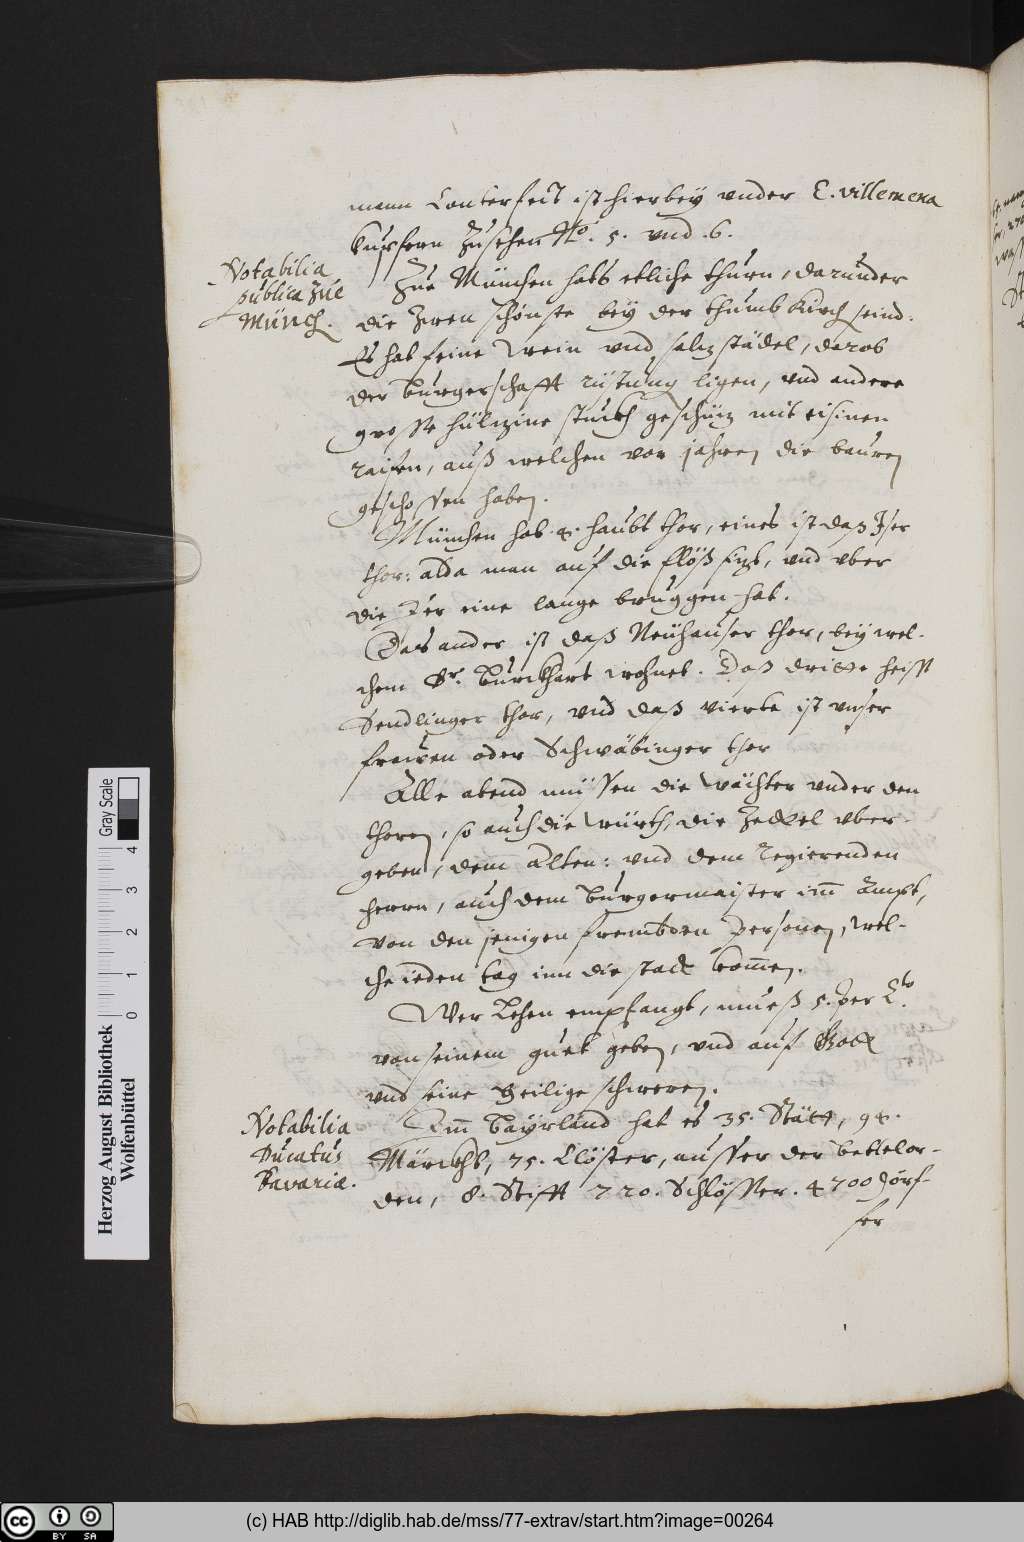 mann Conterfeit ist hierbey vnder C. villemena
kupfern zusehen No. 5. vnd .6.
Notabilia
publica zue
Münch.
Zue München hats etliche thurn, darunder
die zwen schönste bey der thumb Kirch seind.
Es hat feine wein vnd saltz städel, darob
der Burgerschafft rüstung ligen, vnd andere
grosse hültzine stuckh geschütz mit eisinen
raifen, auß welchen vor jahren die bauren
geschossen haben.
München hat 4. haubt thor, eines ist daß Iser
thor: alda man auf die flöß sitzt, vnd vber
die Iser eine lange bruggen hat.
Das ander ist daß Neuhauser thor, bey wel-
chem Hr. Burckhart wohnet. Daß dritte heist
Sendlinger thor, vnd daß vierte ist vnser
frawen oder Schwäbinger thor
Alle abend müssen die wächter vnder den
thoren, so auch die würth, die Zettel vber-
geben, dem Alten: vnd dem Regierenden
herrn, auch dem Burgermaister im̄ Ampt,
von den jenigen frembden personen, wel-
che ieden tag inn die statt kom̄en.
Wer Lehen empfangt, mueß 5. per Cto.
von seinem guet geben, vnd auf Gott
vnd seine Heilige schweren.
Notabilia
Ducatus
Bavariæ.
Im̄ Bayrland hat es 35. Stätt, 94.
Märckht, 75. Clöster, ausser der bettelor-
den, 8. Stifft 720. Schlösser. 4700 dörf-
fer
Herzog August Bibliothek
Wolfenbüttel
0 1 2 3 4
Gray Scale
cc BY SA
(c) HAB http://diglib.hab.de/mss/77-extrav/start.htm?image=00264